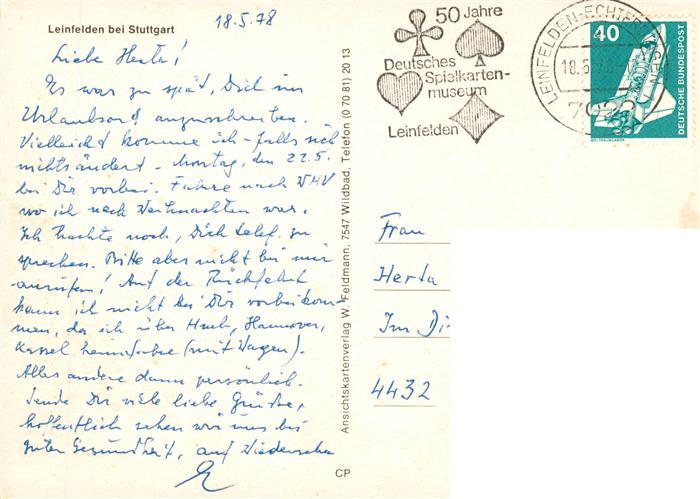 Leinfelden bei Stuttgart
18.5.78
Liebe Herta!
Es war zu spät, Dich im
Urlaubsort anzuschreiben.
Vielleicht komme ich - falls sich
nichts ändert - Montag, den 22.5.
bei Dir vorbei. Fahre nach WHV
wo ich nach Weihnachten war.
Ich trachte noch, Dich telef. zu
sprechen. Bitte aber nicht bei mir
anrufen! Auf der Rückfahrt
kann ich nicht bei Dir vorbeikom-
men, da ich über Hmb, Hannover,
Kassel heimfahre (mit Wagen).
Alles andere dann persönlich.
Sende Dir viele liebe Grüße,
hoffentlich sehen wir uns bei
guter Gesundheit, auf Wiedersehen
Ansichtskartenverlag W. Feldmann, 7547 Wildbad, Telefon (0 70 81) 20 13
CP
50 Jahre
Deutsches
Spielkarten-
museum
Leinfelden
LEINFELDEN-ECHTERDINGEN 1
18.5.78
40
DEUTSCHE BUNDESPOST
WELTRAUMLABOR
Frau
Herta
Im Di
4432